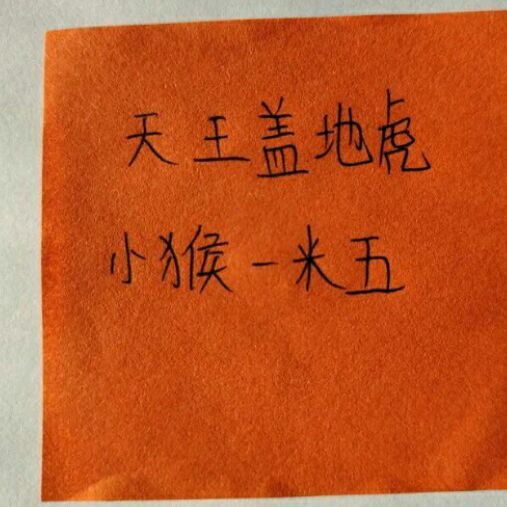 天王盖地虎
小猴一米五